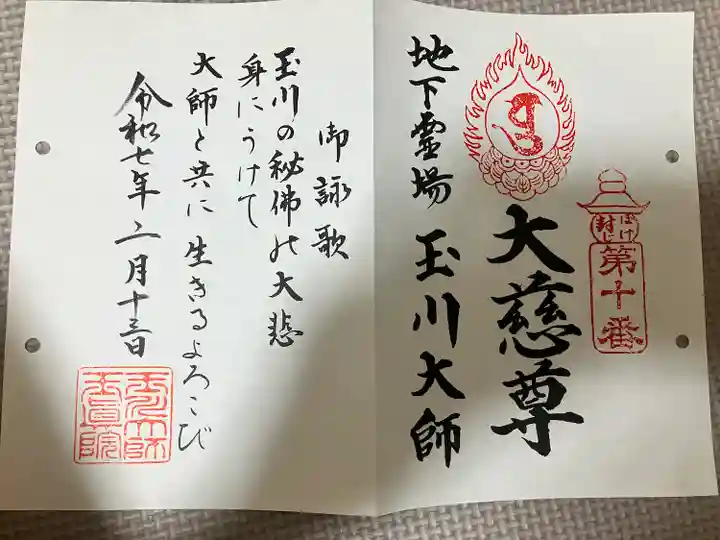 ぼけ
封じ
第十番
大慈尊
地下霊場 玉川大師
御詠歌
玉川の秘佛の大悲
身にうけて
大師と共に生きるよろこび
令和七年二月十三日
玉川大師
玉眞院